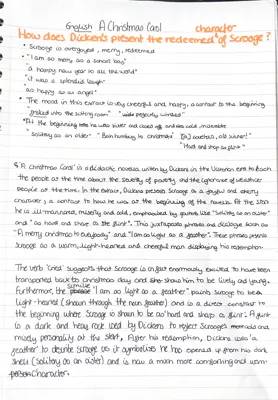 English A Christmas Carol
character
How does Dickens present the redeemed of Scrooge?
• Scrooge is overjoyed, merry, redeemed
• "I am so merry as a school boy"
"a happy new year to all the world"
"it was a splendid laugh"
as happy as an angel"
• The mood in this extract is very cheerful and happy, a contrast to the beginning
into the sitting room"
• At the beginning
solitary as an oyster" "Bah humbug to christmas" covetous, old sinner!"
"Hard and sharp as flint"
A Christmas Carol' is a didactic novella written by Dickens in the Victorian era to teach
the people at the time about the severity of poverty and the ignorance of wealthier
people at the time. In the extract, Dickens presents Scrooge as a joyful and cheery
character, a contrast to how he was at the beginning of the novella. At the start
he is ill-mannered, miserly and odd, emphasised by quotes like "solitary as an oyster"
and "as hard and sharp as the flint". This juxtaposes phrases and dialogue such as
"A merry christmas to everybody" and "I am as light as a feather". These phrases present
Scrooge as a warm, light-hearted and cheerful man displaying his redemption.
The verb 'cried' suggests that Scrooge is in fact enormously excited to have been
transported back to christmas day and show him to be lively and young.
Furthermore, the simile "I am so light as a feather" paints scrooge to be a
light-hearted (shown through the noun feather) and is a direct contrast to
the beginning where Scrooge is shown to be as 'hard and sharp as flint'. Flint
is a dark and heavy rock used by Dickens to reject Scrooge's and
misley personality at the start. After his redemption, Dickens uses 'a
feather' to describe scrooge as it symbolizes he has opened up from his dark
shell (solitary as an oyster) and is now a much more comforting and warm
character.